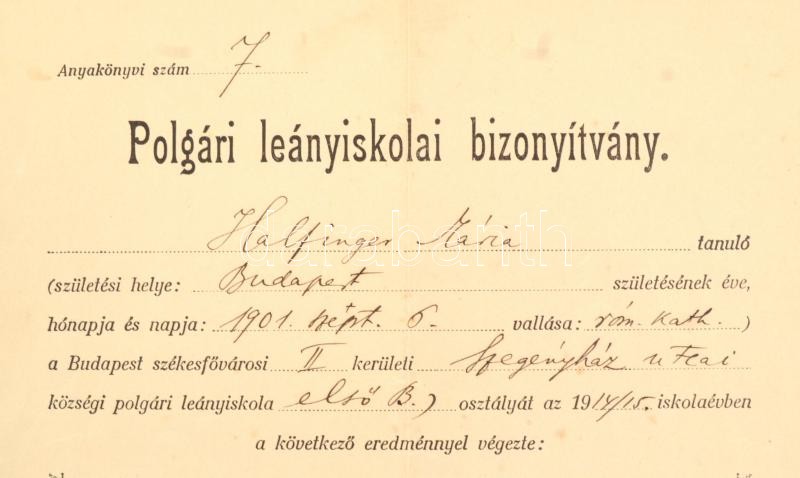 Anyakönyvi szám 7.
Polgári leányiskolai bizonyítvány.
Halfinger Mária tanuló
(születési helye: Budapest születésének éve,
hónapja és napja: 1901. szépt. 6. vallása: róm. kath.)
a Budapest székesfővárosi II kerületi Szegényház utcai
községi polgári leányiskola első B.) osztályát az 1914/15. iskolaévben
a következő eredménnyel végezte: